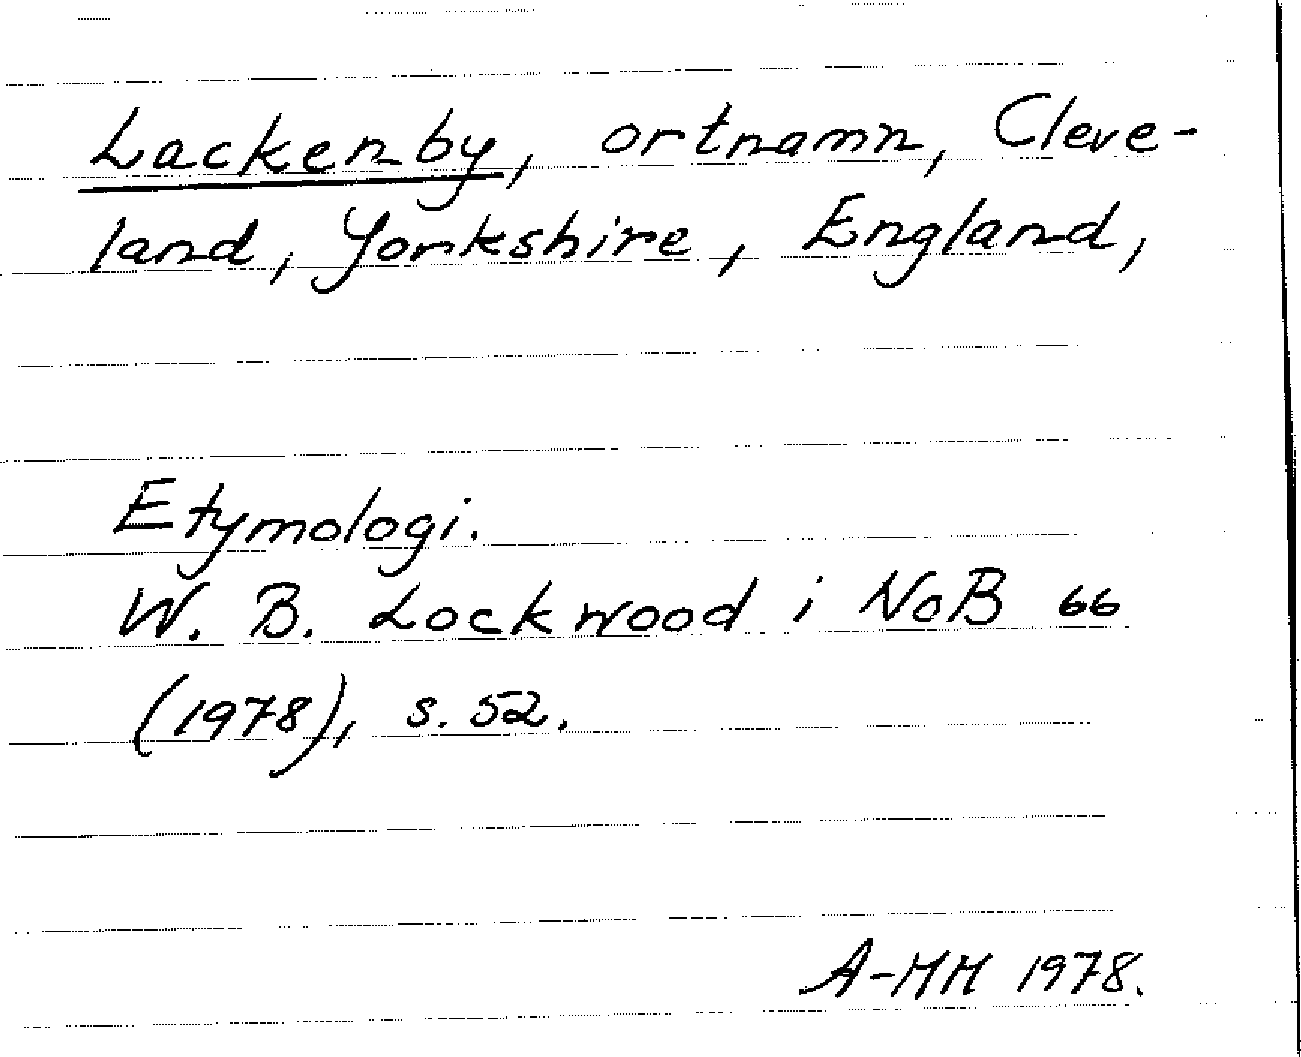 Lackenby, ortnamn, Cleve-
land, Yorkshire, England,
Etymologi.
W. B. Lockwood i NoB 66
(1978), s. 52.
A-HH 1978.